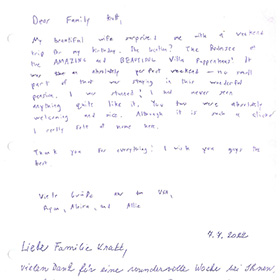 Dear Family Kraft,
My beautiful wife surprised me with a weekend
trip for my birthday. The location? The Romance of
the AMAZING and BEAUTIFUL Villa Puppenhaus! It
was an absolutely perfect weekend – no small
part of that was staying in this wonderful
pension. I was stunned! I had never seen
anything quite like it. You two were absolutely
welcoming and nice. Although it is such a cliché
I really felt at home here.
Thank you for everything! I wish you guys the
best.
Viele Grüße aus den USA,
Ryan, and Allie
7.4.2012
Liebe Familie Kraft,
vielen Dank für eine wundervolle Woche bei Ihnen